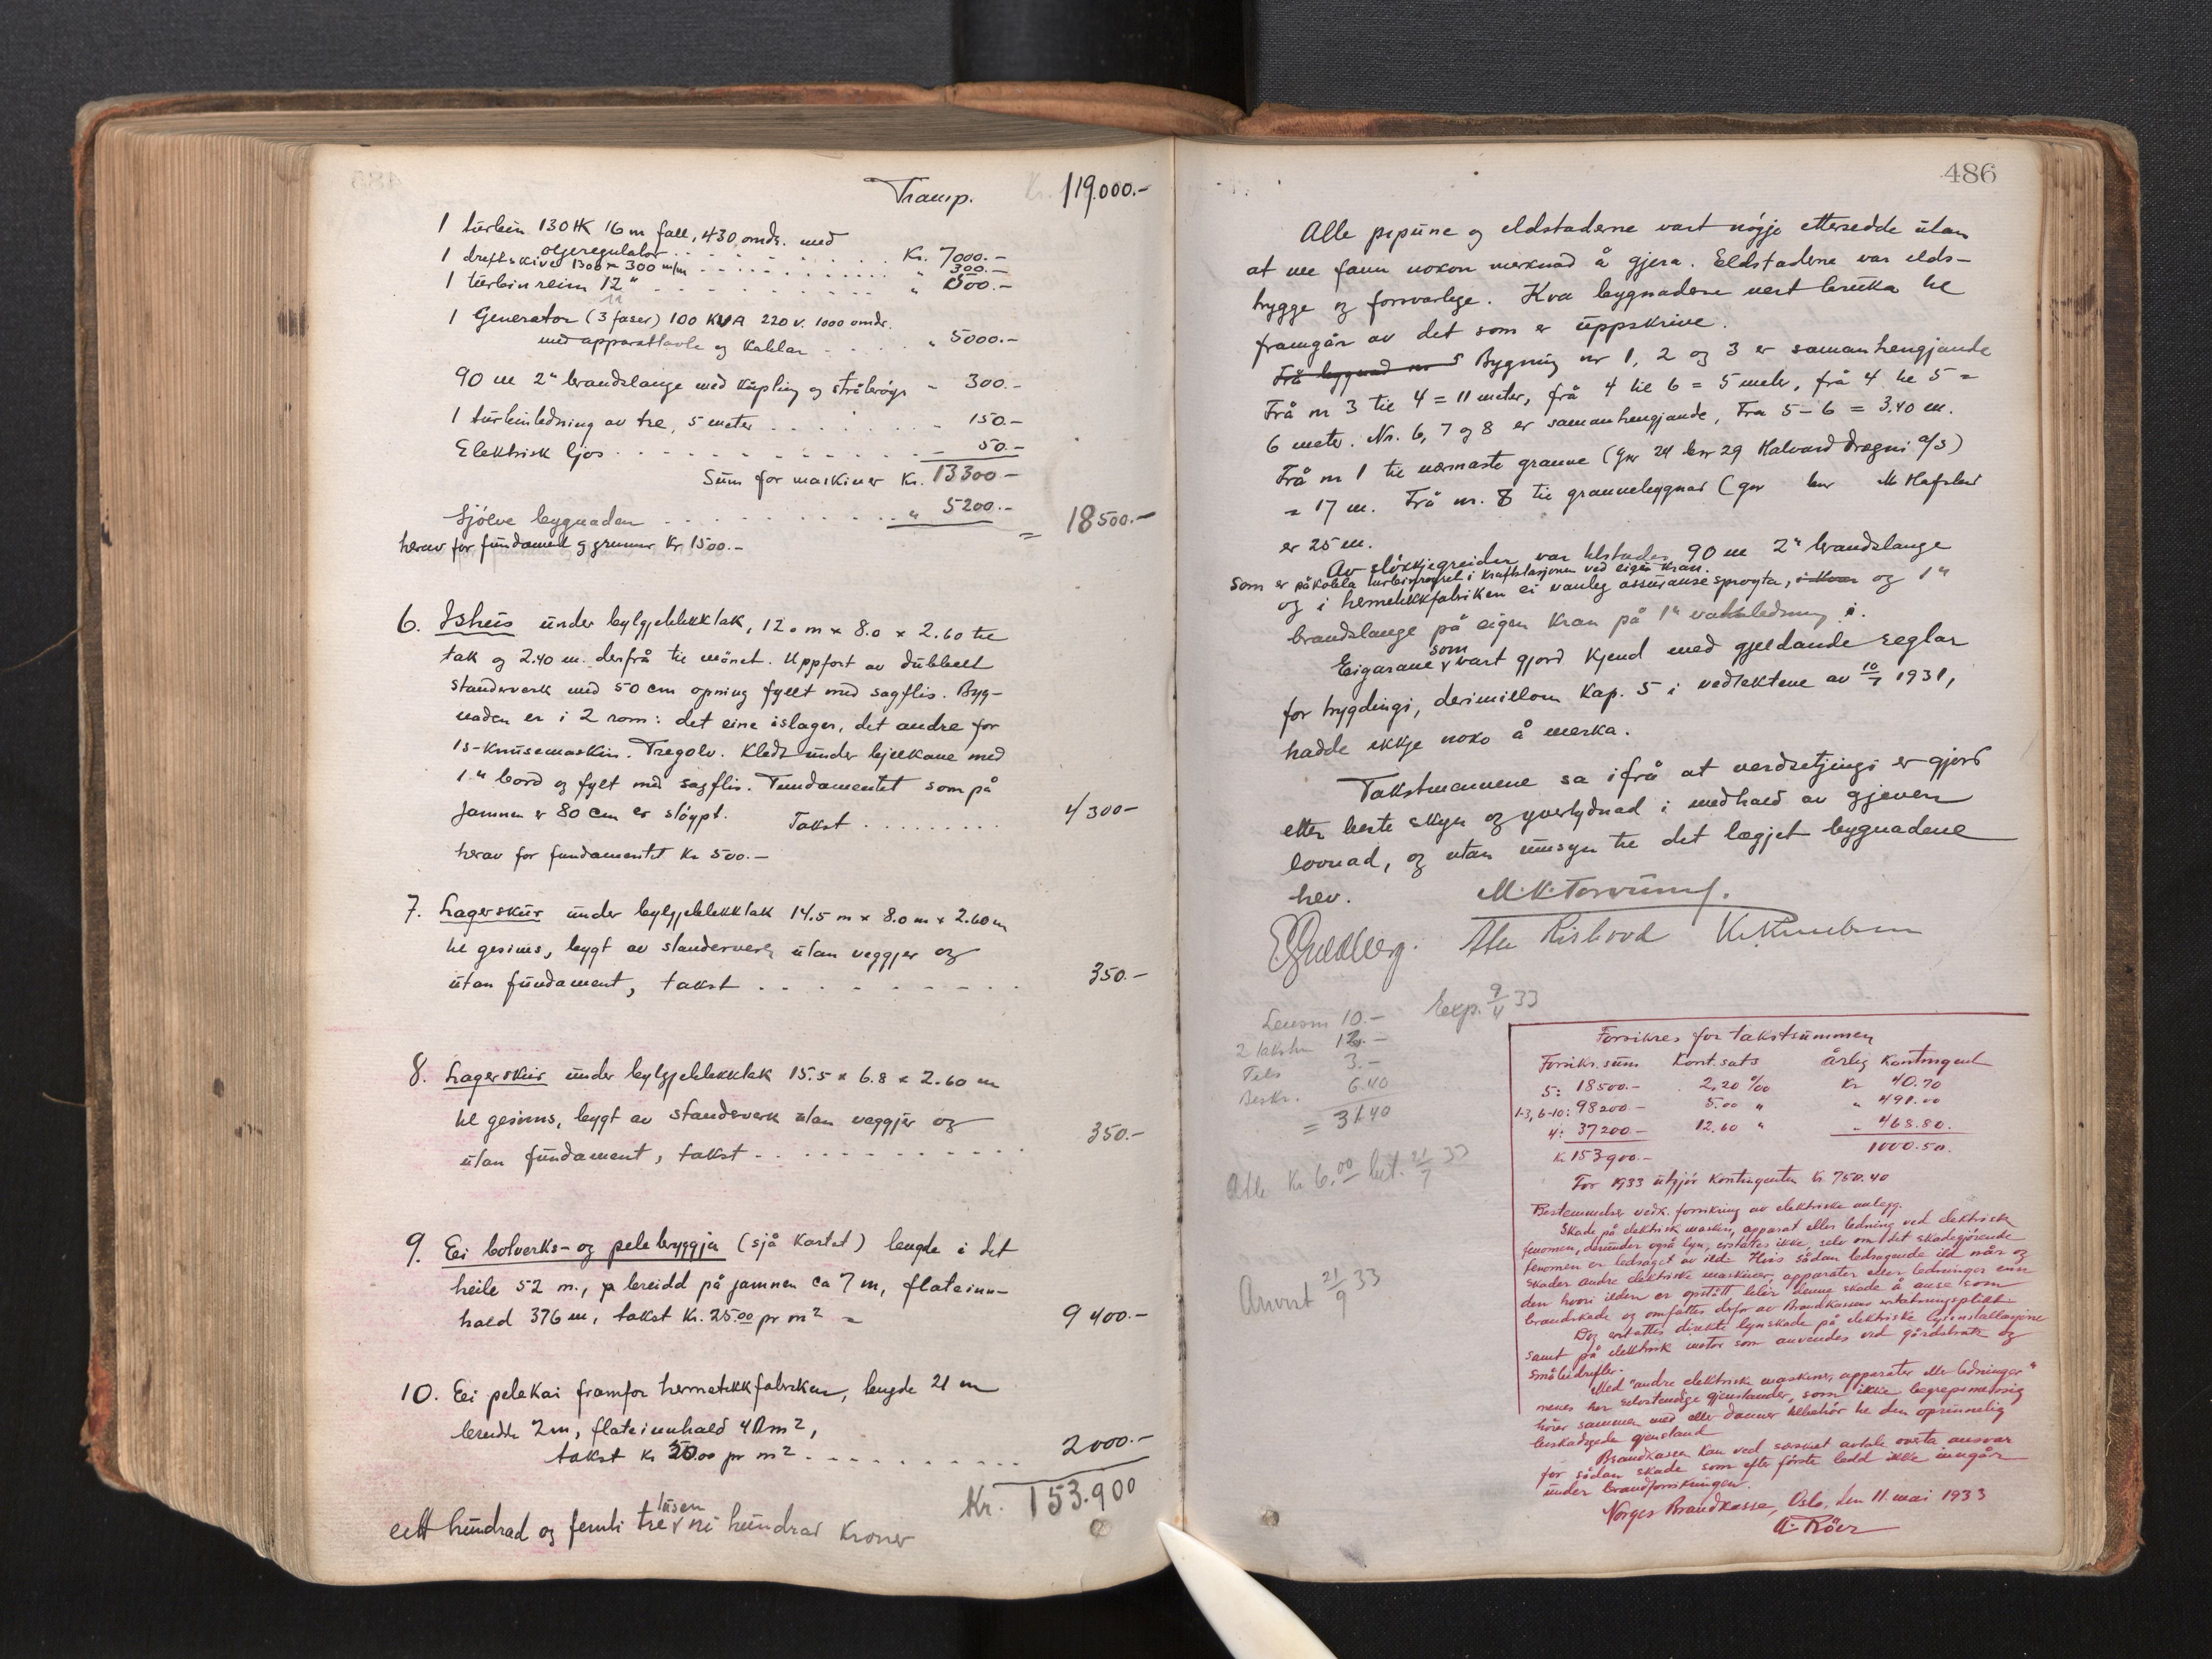 Transp. Kr. 119.000.-
1 turbin 130 HK 16 m fall, 430 omdr. med
oljeregulator . . . . . . . Kr. 7000.-
1 dreftskive 1300 x 300 m/m . . . . . . . " 300.-
1 turbinreim 12" . . . . . . . " 500.-
1 Generator (3 faser) 100 KVA 220 v. 1000 omdr.
med apparattavle og kablar . . . . " 5000.-
90 m 2" brandslange med kupling og strålerøyr - 300.-
1 turbinledning av tre, 5 meter . . . . . . - 150.-
Elektrisk ljos . . . . . . . . . . - 50.-
Sum for maskiner Kr. 13300-
Sjølve bygnaden . . . . . . . . . " 5200.- = 18500.-
herav for fundament og grunnur Kr 1500.-
6. Ishus under bylgjeblekktak, 12.0 m x 8.0 x 2.60 til
tak og 2.40 m. derfrå til mönet. Uppført av dubbelt
standerverk med 50 cm opning fyllt med sagflis. Byg-
naden er i 2 rom: det eine islager, det andre for
is-knusemaskin. Tregolv. Kledt under bjelkane med
1" bord og fylt med sagflis. Fundamentet som på
jamnen er 80 cm er støypt. Takst . . . . . . . . 4300-
herav for fundamentet Kr 500.-
7. Lagerskur under bylgjeblekktak 14.5 m x 8.0 m x 2.60 m
til gesims, bygt av standerverk utan veggjer og
utan fundament, takst . . . . . . . . . 350.-
8. Lagerskur under bylgjeblekktak 15.5 x 6.8 x 2.60 m
til gesims, bygt av standerverk utan veggjer og
utan fundament, takst . . . . . . . . . . 350.-
9. Ei bolverks- og pelebryggja (sjå kartet) lengde i det
heile 52 m., breidd på jamnen ca 7 m, flateinn-
hald 376 m, takst Kr. 25.00 pr m2 = 9400.-
10. Ei pelekai framfor hermetikkfabriken, lengde 21 m
breidde 2 m, flateinnhald 40 m2,
takst kr 50.00 pr m2 . . . . . . . . . . 2000.-
Kr. 153.900
tusen
eitt hundrad og femti tre ni hundrad Kroner
486
Alle pipune og eldstaderne vart nøgje ettersedde utan
at me fann nokon merknad å gjera. Eldstadene var elds-
trygge og forsvarlege. Kva bygnadene vert bruka til
framgår av det som er uppskrive.
Frå bygnad nr 5 Bygning nr 1, 2 og 3 er samanhengjande
Frå nr 3 til 4 = 11 meter, frå 4 til 6 = 5 meter, frå 4 til 5 =
6 meter. Nr. 6, 7 og 8 er samanhengjande, Fra 5-6 = 3.40 m.
Frå nr 1 til nærmaste granne (gnr 24 bnr 29 Halvard Drægni a/s)
= 17 m. Frå nr. 8 til grannebygnad (gnr bnr M Hafslad
er 25 m.
Av sløkkjegreider var tilstades 90 m 2" brandslange
som er påkobla turbinrøyret i kraftstasjonen ved eigen kran.
og i hermetikkfabriken ei vanleg assuransesprøyta, og 1"
brandslange på eigen kran på 1" vassledning.
Eigarane som vart gjord kjend med gjeldande reglar
for trygdingi, derimillom Kap. 5 i vedtektene av 10/7 1931,
hadde ikkje noko å merka.
Takstmennene sa ifrå at verdsetjingi er gjord
etter beste skyn og yvertydnad i medhald av gjeven
lovnad, og utan umsyn til det lægjet bygnadene
hev. M. K. Torvund.
Lensm 10.- Exp. 9/4 33
2 takstm 12.-
Tels 3.-
Beskr. 6.40
= 31.40
Atte Kr 6.00 bet. 21/7 33
Anvist 21/9 33
Forsikres for takstsummen
Forsikr.sum Kont.sats Årlig Kontingent
5: 18500.- 2,20 ‰ Kr 40.70
1-3, 6-10: 98200- 5.00 " " 491.00
4: 37200.- 12,60 " - 468.80.
Kr 153900.- 1000.50.
For 1933 utgjör kontingenten Kr. 750.40
Bestemmelser vedr. forsikring av elektriske anlegg.
Skade på elektrisk maskin, apparat eller ledning ved elektrisk
fenomen, derunder også lyn, erstattes ikke, selv om det skadegjörende
fenomen er ledsaget av ild. Hvis sådan ledsagende ild når og
skader andre elektriske maskiner, apparater eller ledninger enn
den hvori ilden er opstått blir denne skade å anse som
brandskade og omfattes derfor av Brandkassens erstatningsplikt.
Dog erstattes direkte lynskade på elektriske lysinstallasjoner
samt på elektrisk motor som anvendes ved gårdsbruk og
småbedrifter.
Med "andre elektriske maskiner, apparater eller ledninger"
menes her selvstendige gjenstander, som ikke begrepsmessig
hörer sammen med eller danner tilbehör til den oprinnelig
beskadigede gjenstand.
Brandkassen kan ved særskilt avtale overta ansvar
for sådan skade som efter förste ledd ikke inngår
under brandforsikringen.
Norges Brandkasse, Oslo, den 11 mai 1933